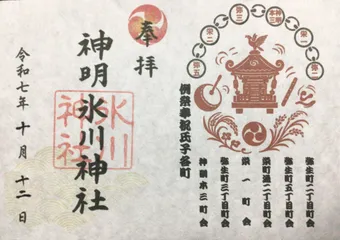 奉拝
神明氷川神社
氷川
神社
令和七年 十月 十二日
弥五
栄二
弥三
本三
神明
栄一
弥二
例祭奉祝氏子各町
弥生町二丁目町会
弥生町五丁目町会
栄町通二丁目町会
栄一町会
弥生町三丁目町会
神明本三町会